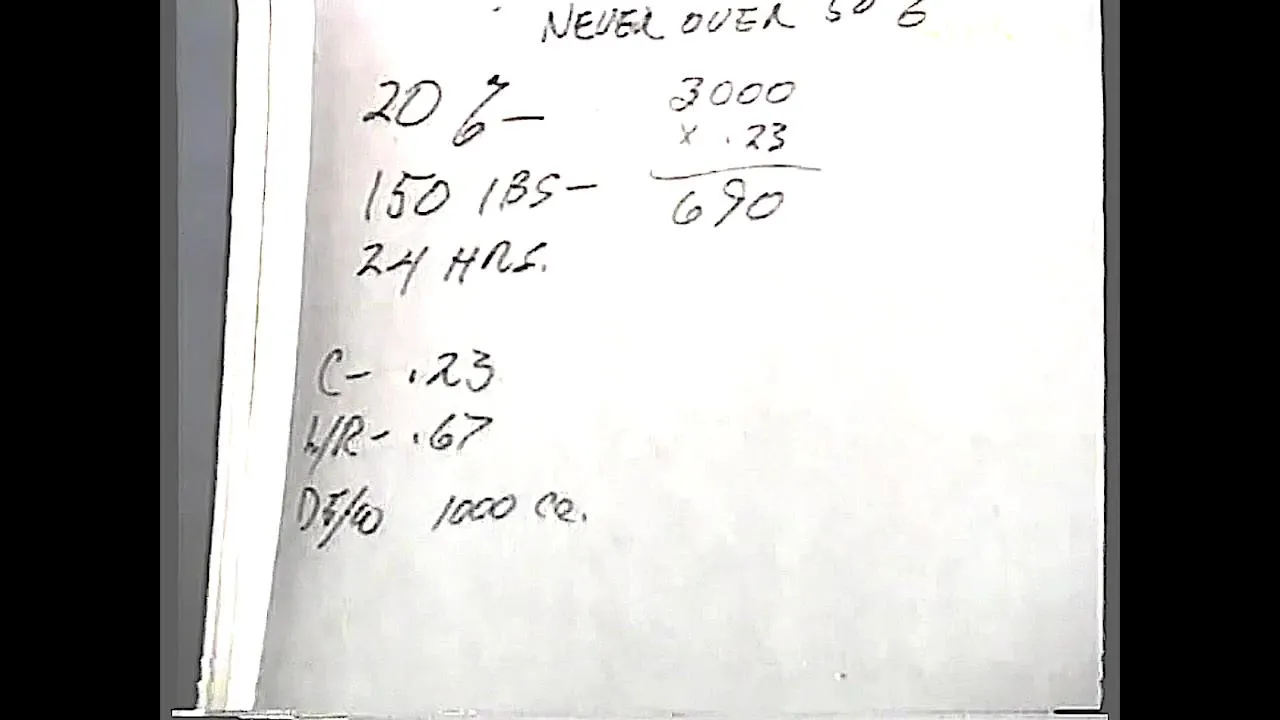 NEVER OVER 50 %
20 % -
150 lBS -
24 HRS.
3000
x .23
690
C - .23
L/R - .67
D5/W 1000 CC.